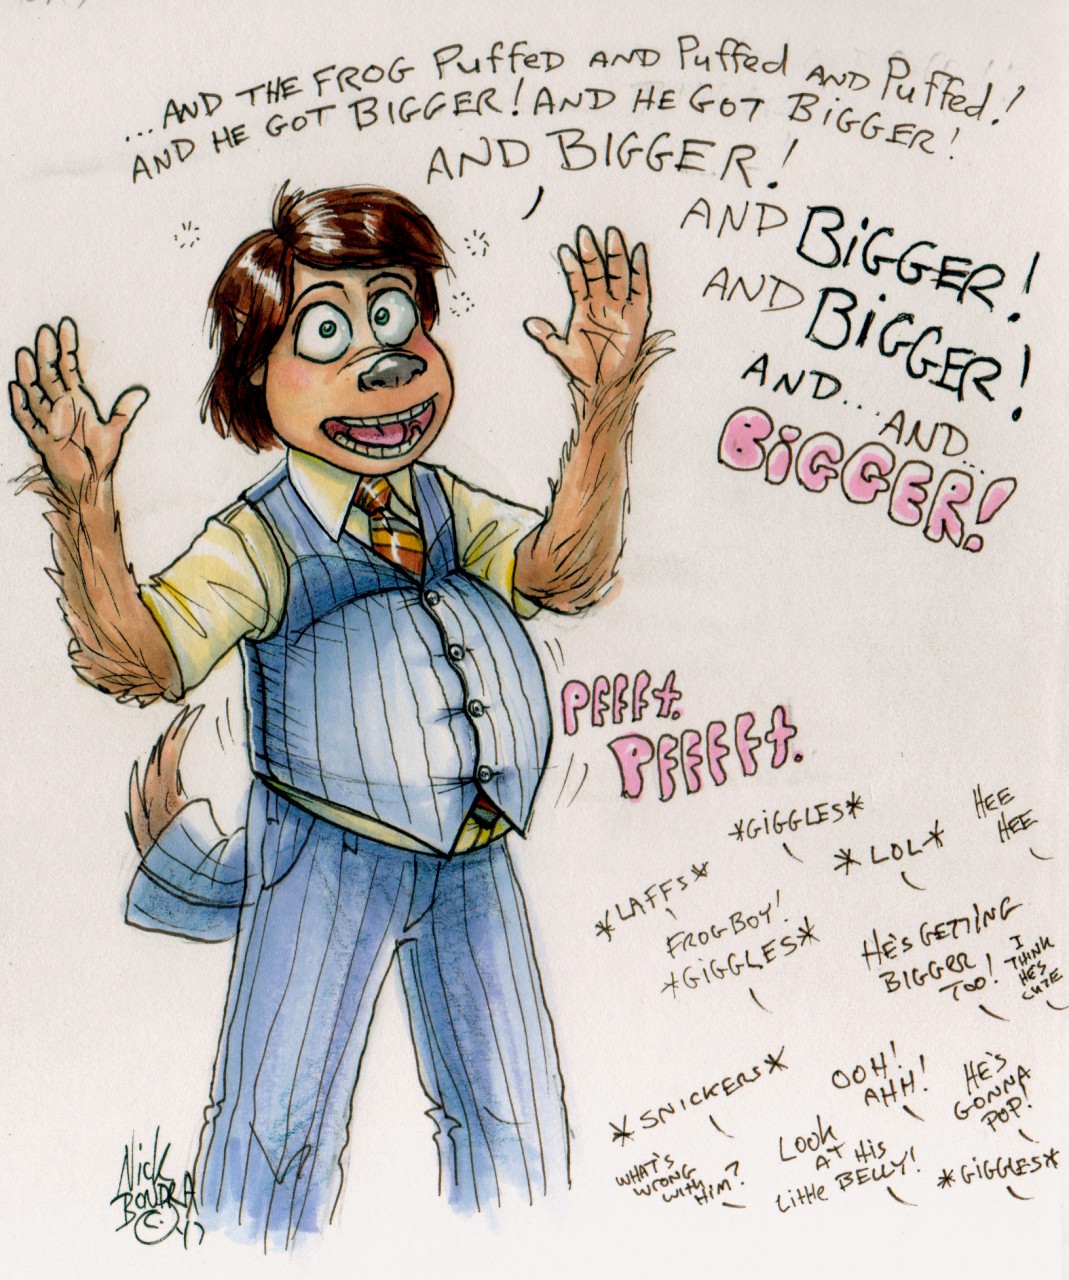 ...AND THE FROG PuffED AND Puffed AND Puffed!
AND HE GOT BIGGER! AND HE GOT BIGGER!
AND BIGGER!
AND BiGGER!
AND BiGGER!
AND... AND...
BiGGER!
PFFFt.
PFFFFt.
*GiGGLES*
HEE
HEE
*LOL*
*LAFFS*
FROG BOY!
*GiGGLES*
HE'S GETTING
BIGGER
TOO!
I
THINK
HE'S
CUTE
*SNICKERS*
OOH!
AHH!
HE'S
GONNA
POP!
WHAT'S
WRONG
WITH
HIM?
LOOK
AT HIS
LittlE BELLY!
*GIGGLES*
Nick
BOUDRA
© '17